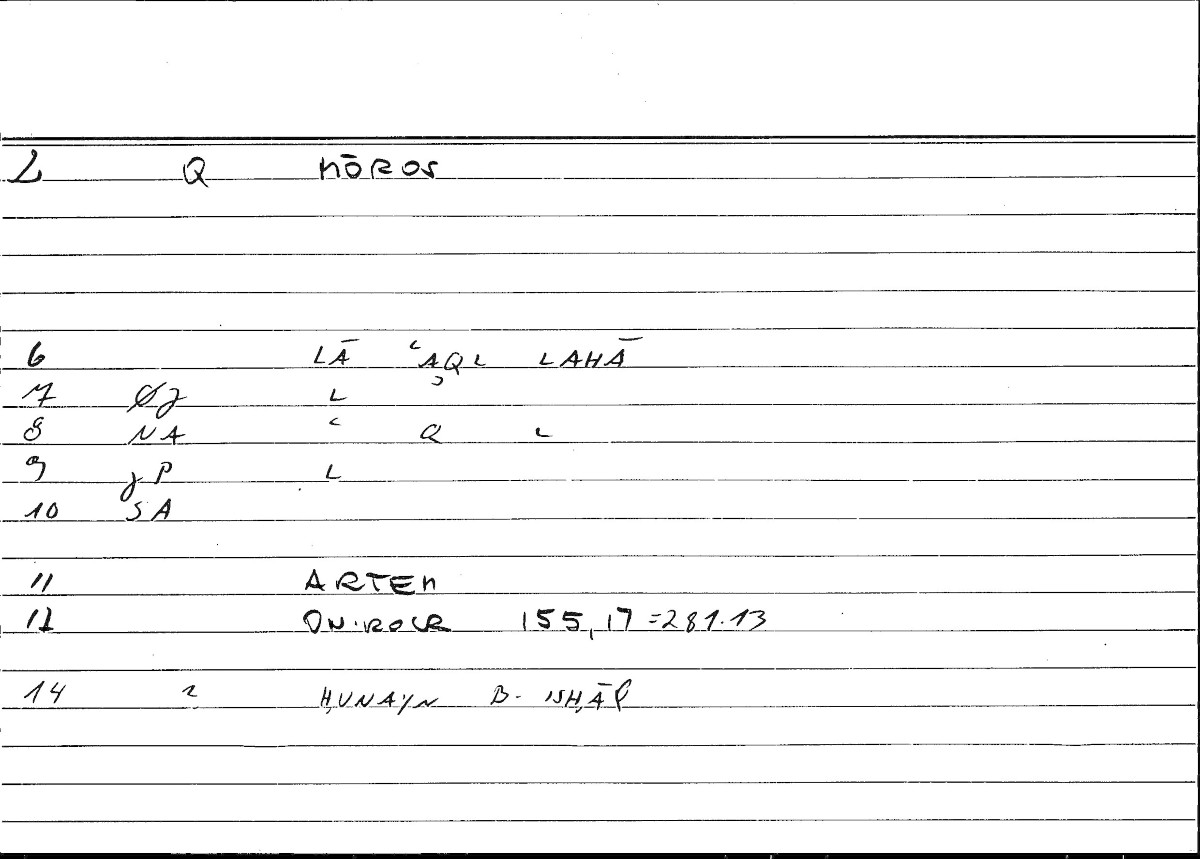 L Q MŌROS
6 LĀ ʿAQL LAHĀ
7 ØJ L
8 NA ʿ Q L
9 JP L
10 SA
11 ARTEM
12 ONIROCR 155,17=281.13
14 2 ḤUNAYN B- ISḤĀQ